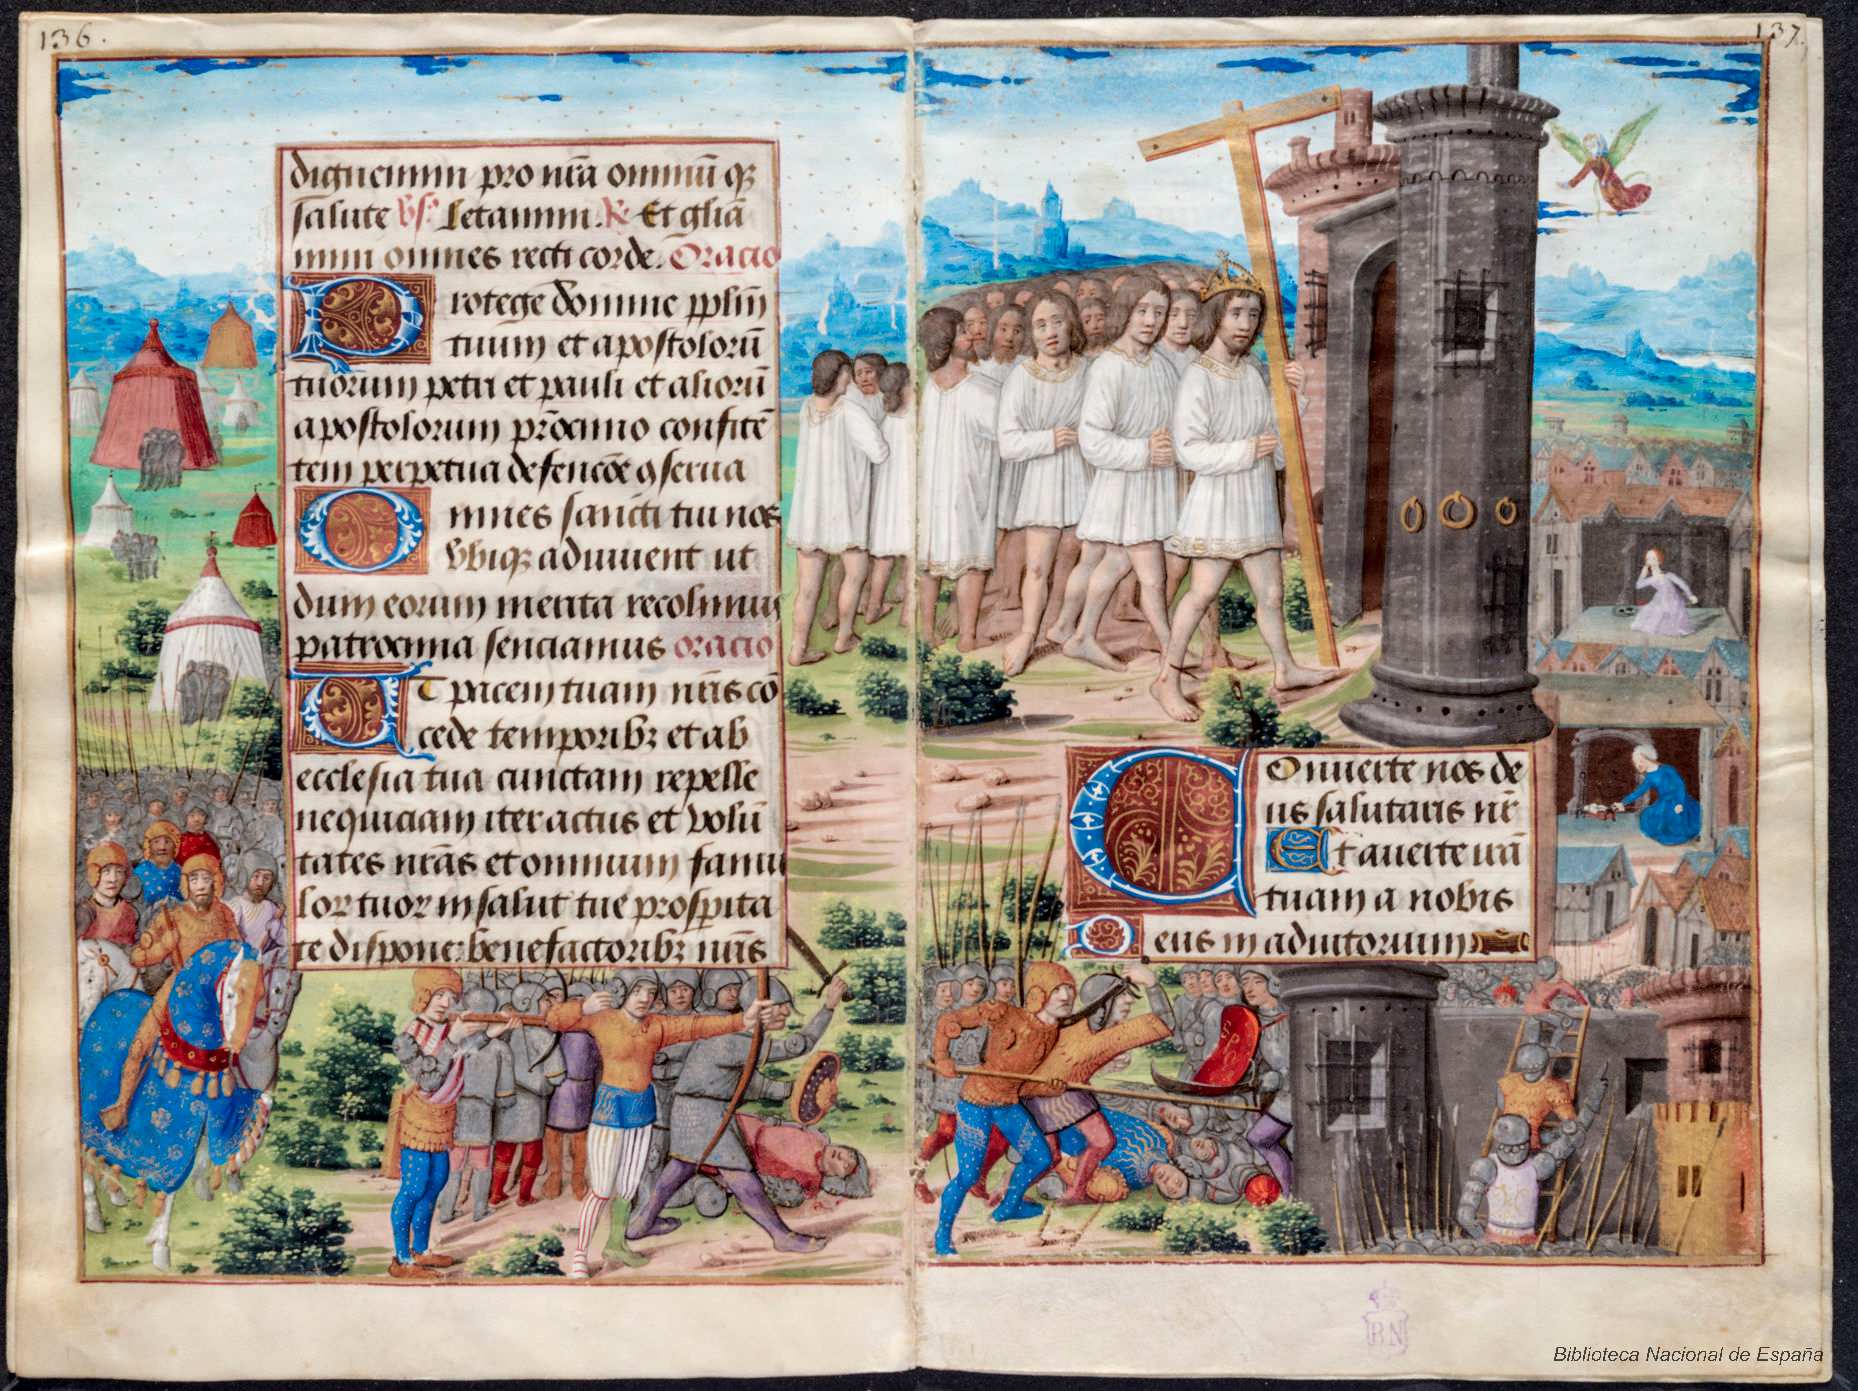 136.
dignemini pro nr̃a omniũ qz
salute vs̃. Letamini. R̃. Et gl̃ia
mini omnes recti corde. Oracio
Protege domine ppl̃m
tuum et apostolorũ
tuorum petri et pauli et aliorũ
apostolorum pr̃ocinio confitẽ
tem perpetua defencõe ꝯserua
Omnes sancti tui nos
vbiqz adiuuent ut
dum eorum merita recolimus
patrocinia senciamus oracio
ET pacem tuam nr̃is cõ
cede temporibz et ab
ecclesia tua cunctam repelle
nequiciam iter actus et volũ
tates nr̃as et omnium famu
lor tuor in salut tue prosperita
te dispone: benefactoribz nr̃is
137.
COnuerte nos de
us salutaris nr̃
Et auerte irã
tuam a nobis
Deus in adiutorium
SPQ
BN
Biblioteca Nacional de España